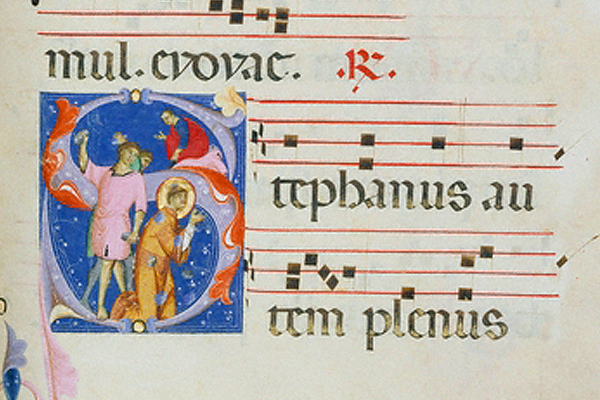 mul. evovae. .R.
Stephanus au
tem plenus